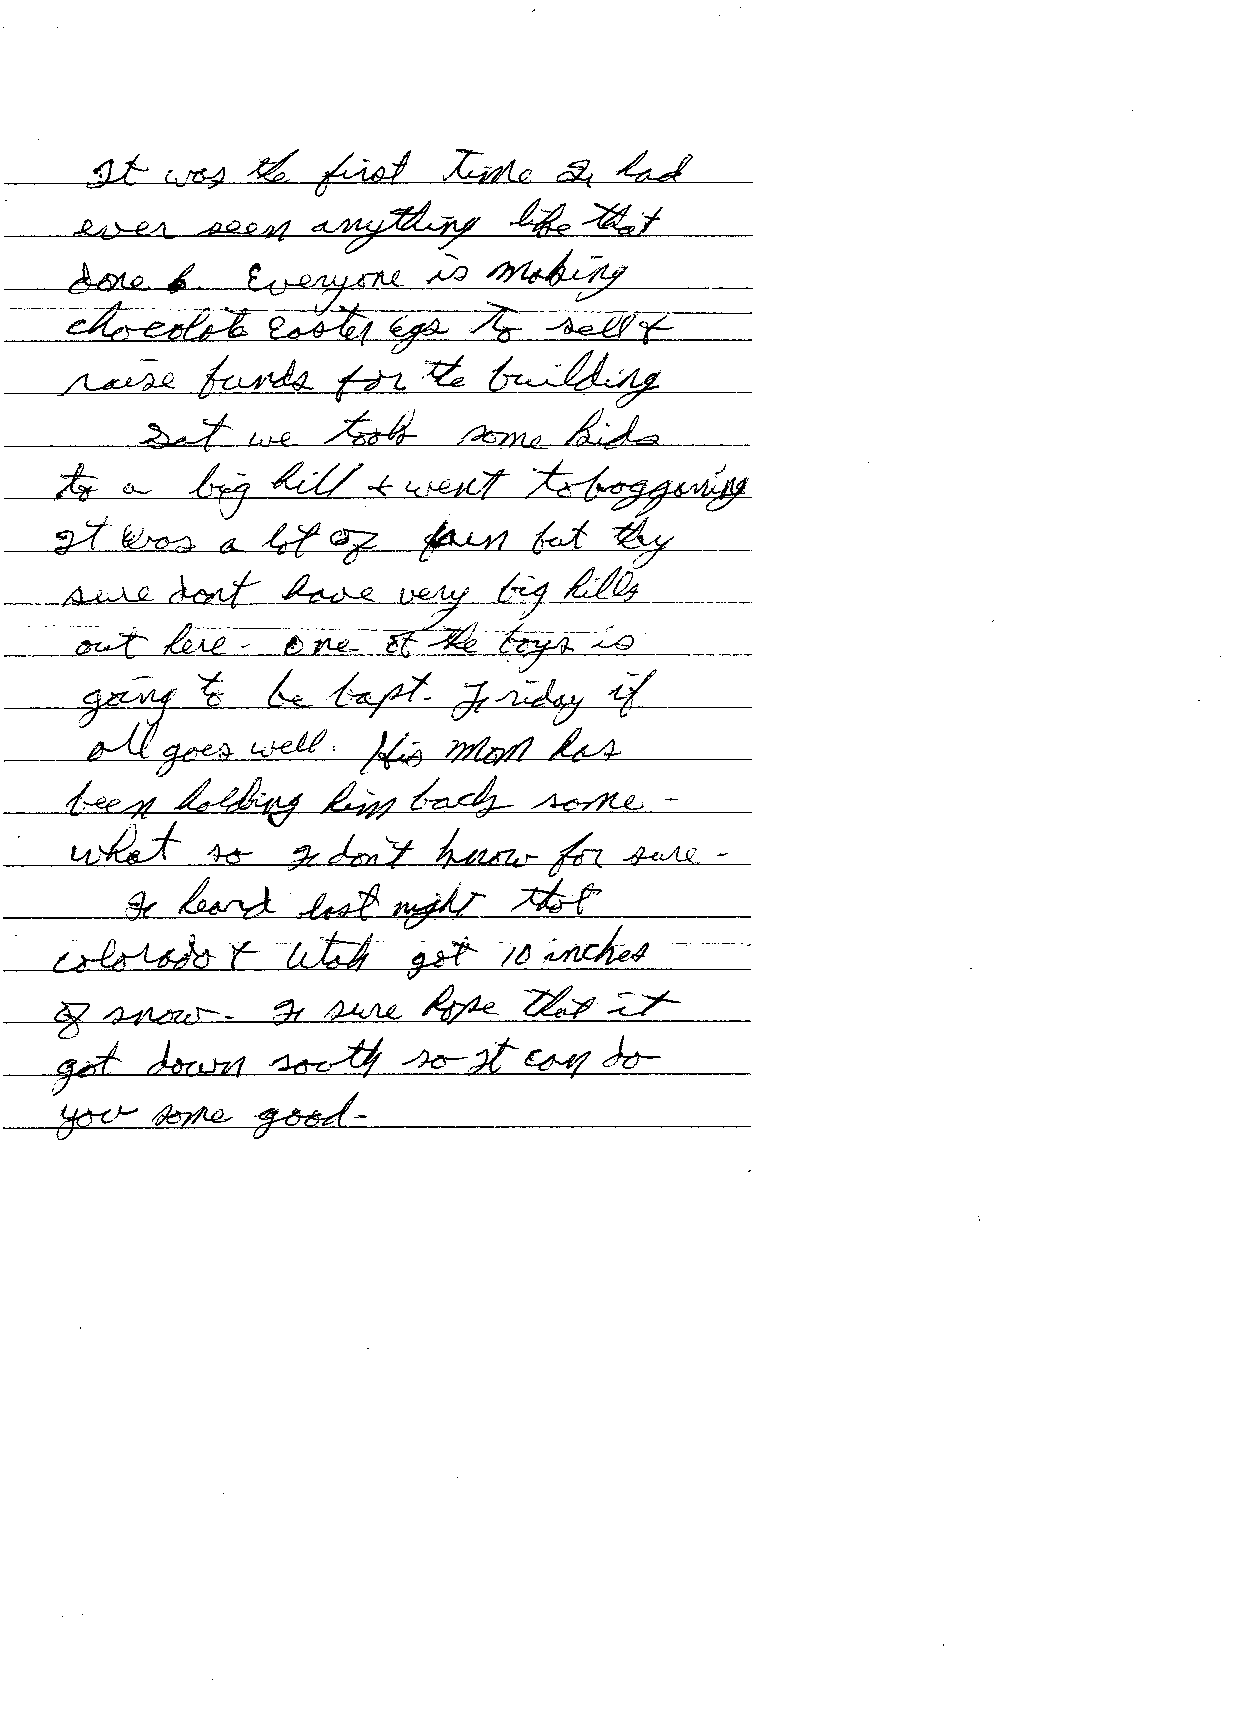 It was the first time I had
ever seen anything like that
done. Everyone is making
chocolate Easter egs to sell &
raise funds for the building
Sat we took some kids
to a big hill & went tobogganing
It was a lot of fun but thy
sure dont have very big hills
out here - one of the boys is
going to be bapt. Friday if
all goes well. His mom has
been holding him back some -
what so I don't know for sure -
I heard last night that
colorado & Utah got 10 inches
of snow - I sure hope that it
got down south so it can do
you some good -